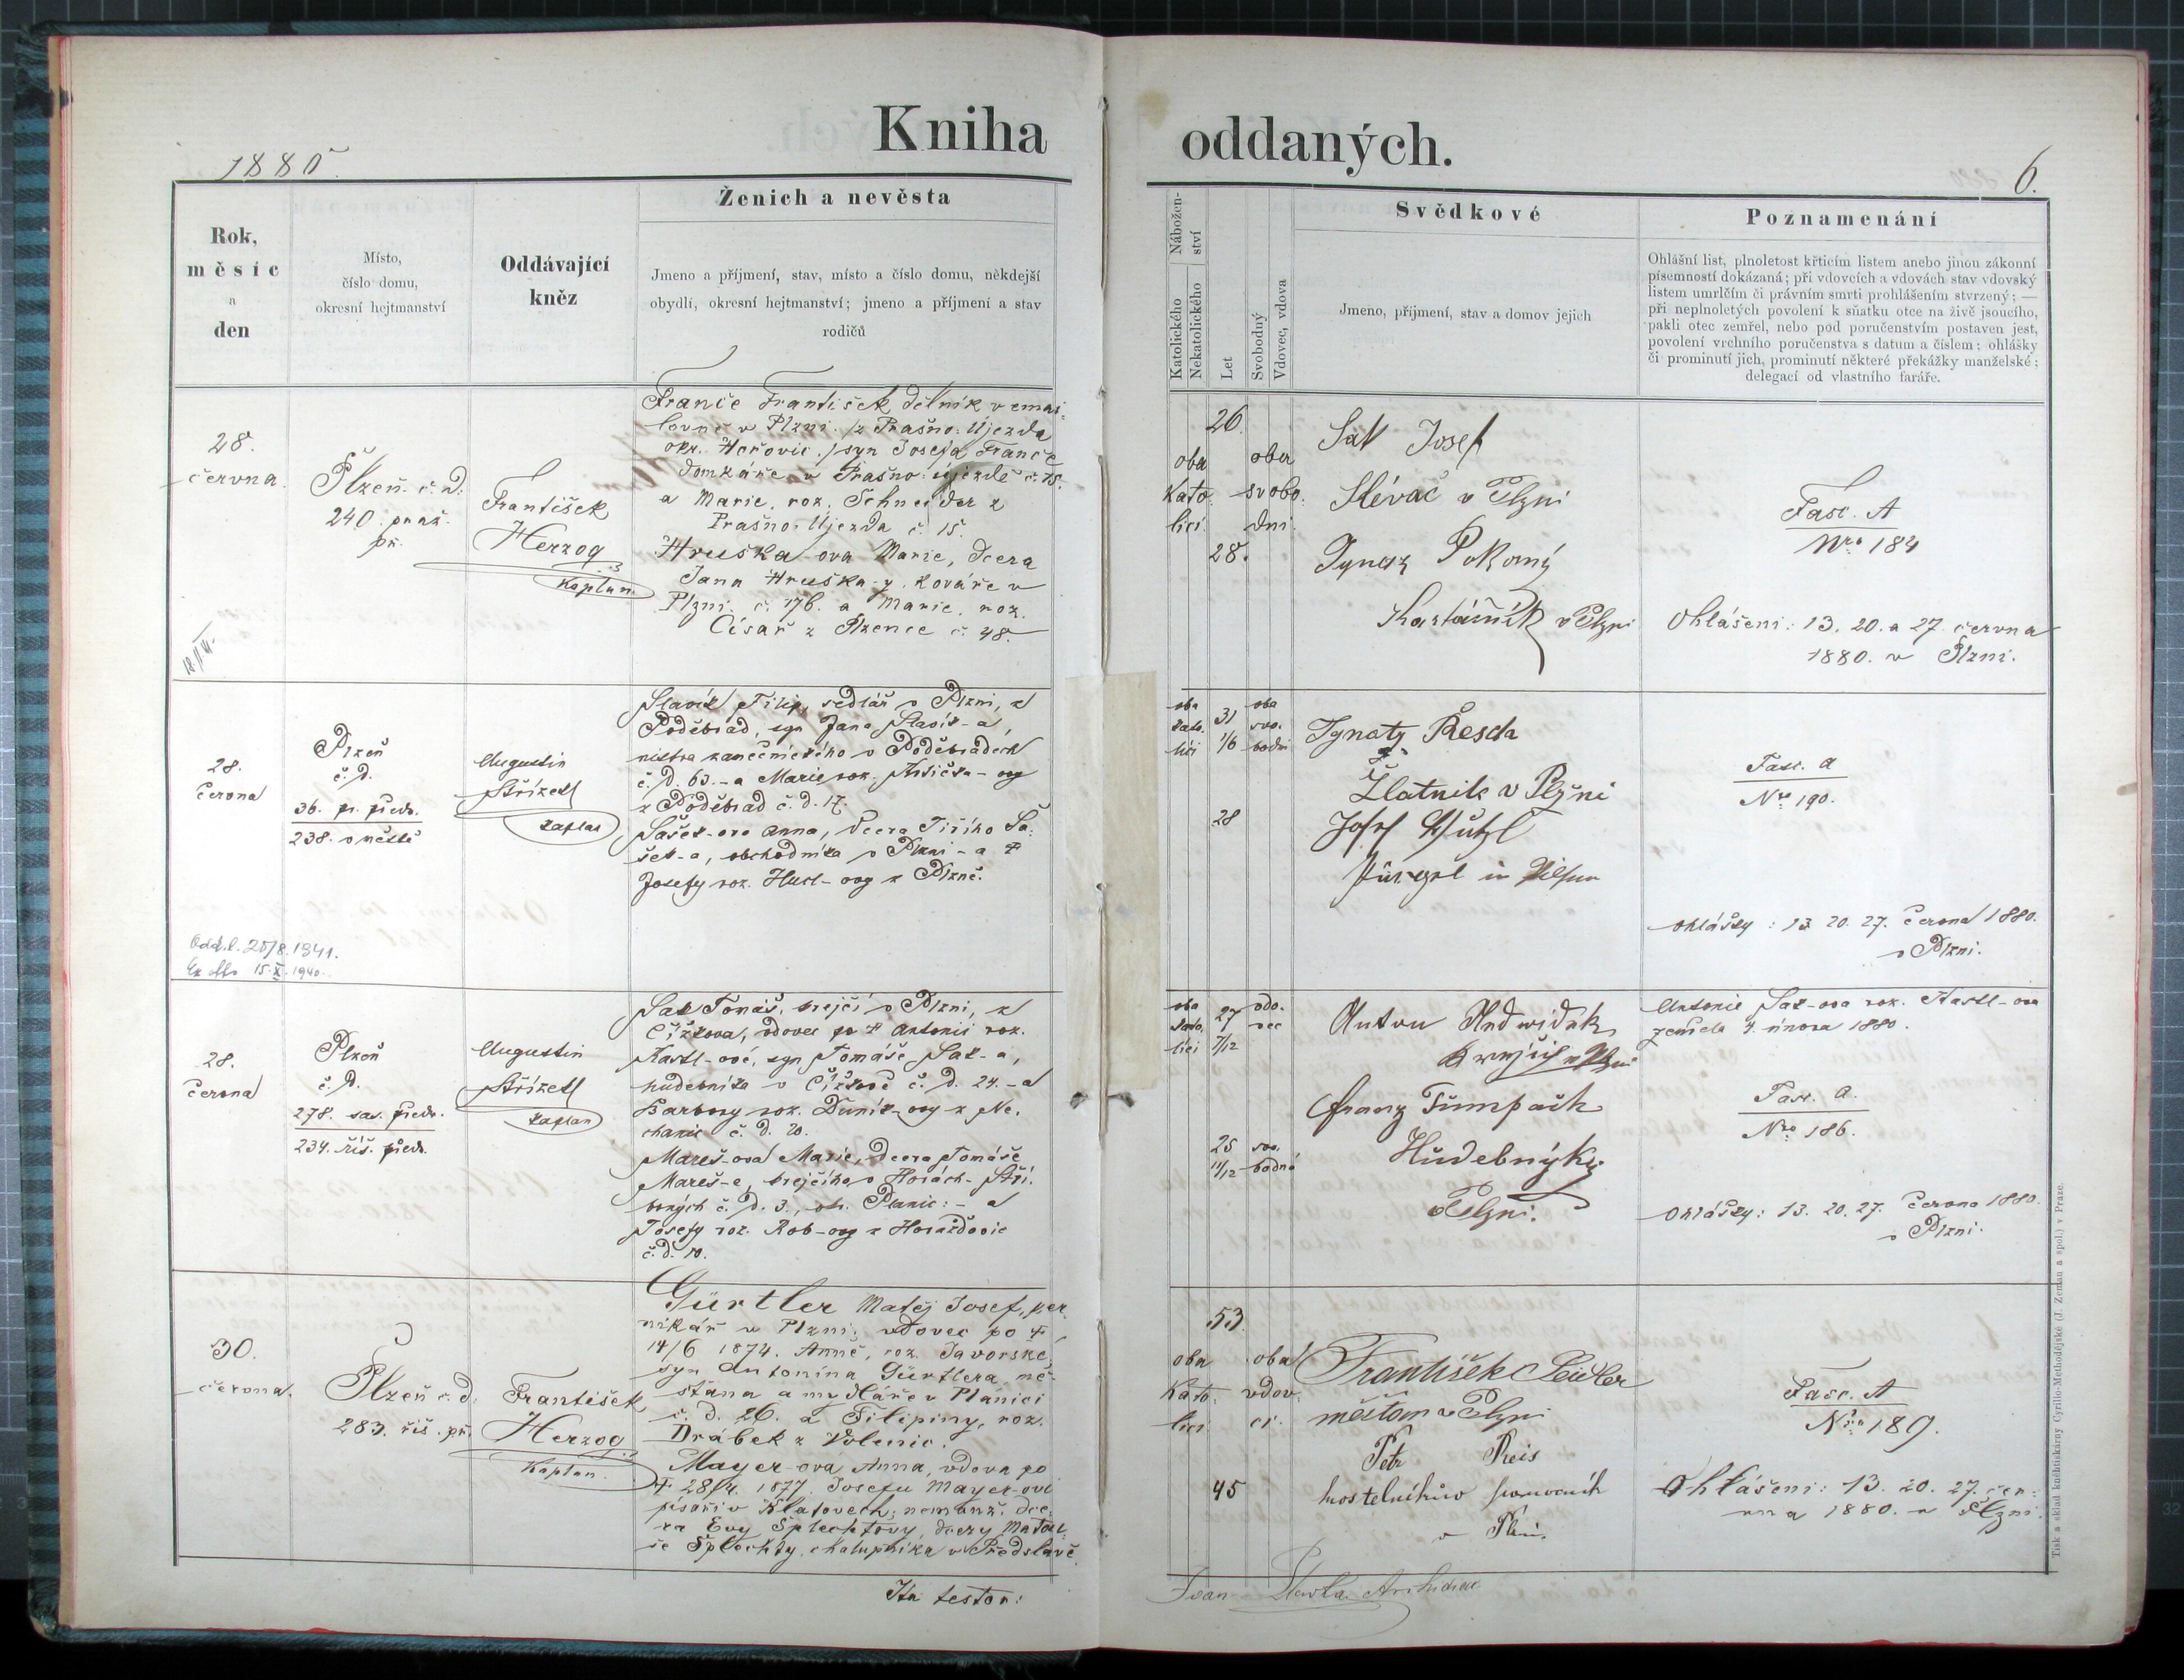 Kniha oddaných.
1880.
6.
Rok,
měsíc
a
den
Místo,
číslo domu,
okresní hejtmanství
Oddávající
kněz
Ženich a nevěsta
Jmeno a příjmení, stav, místo a číslo domu, někdejší
obydlí, okresní hejtmanství; jmeno a příjmení a stav
rodičů
Nábožen-
ství
Katolického
Nekatolického
Let
Svobodný
Vdovec, vdova
Svědkové
Jmeno, příjmení, stav a domov jejich
Poznamenání
Ohlášní list, plnoletost křticím listem anebo jinou zákonní
písemností dokázaná; při vdovcích a vdovách stav vdovský
listem umrlčím či právním smrti prohlášením stvrzený; —
při neplnoletých povolení k sňatku otce na živě jsoucího,
pakli otec zemřel, nebo pod poručenstvím postaven jest,
povolení vrchního poručenstva s datum a číslem; ohlášky
či prominutí jich, prominutí některé překážky manželské;
delegací od vlastního faráře.
28.
června.
Plzeň č. d.
240. praž.
př.
František
Herzog
Kaplan
Franče František dělník v emai-
lovně v Plzni. /z Prašno-Újezda
okr. Hořovic./ syn Josefa Franče
domkáře v Prašno-újezdě č. 15.
a Marie, roz. Schneider z
Prašno-Újezda č. 15.
Hruška-ova Marie, dcera
Jana Hruška-y, kováře v
Plzni č. 176. a Marie, roz.
Císař z Plzence č. 48.
26.
oba oba
kato- svobo-
lící. dní.
28.
Josef
Slévač v Plzni
Ignaz Pokorný
Kartáčník v Plzni
Fasc. A
Nro 184
Ohlášení: 13. 20. a 27. června
1880. v Plzni.
28.
června
Plzeň
č. d.
36. pr. předm.
238. v městě
Augustin
Střízetl
kaplan
Slavík Filip, sedlář v Plzni, z
Poděbrad, syn Jana Slavík-a,
mistra v Poděbradech
č. d. 63. - a Marie roz.
z Poděbrad č. d. 17.
Sašek-ova Anna, dcera Jiřího Sa-
šek-a, obchodníka v Plzni - a †
Josefy roz. z Plzně.
oba 31 oba
kato- 1/6 svo-
líci bodni
28
Ignatz Resch
Zlatnik v Plzni
Josef
in Pilsen
Fasc. a
Nro 190.
ohlášky: 13. 20. 27. června 1880.
v Plzni.
Odd. l. 25/8. 1941.
Ex offo 15. X. 1940.
28.
června
Plzeň
č. d.
278. sas. předm.
234. říš. předm.
Augustin
Střízetl
kaplan
Sak Tomáš, krejčí v Plzni, z
Čížkova, vdovec po † Antonii roz.
Kastl-ové, syn Tomáše Sak-a,
hudebníka v Čížkově č. d. 24. - a
Barbory roz. z Ne-
chanic č. d. 20.
Mareš-ova Marie, dcera Tomáše
Mareš-e, krejčího v Horách-Stří-
brných č. d. 3., okr. Planic: - a
Josefy roz. Rob-ovy z Horažďovic
č. d. 10.
oba 27 vdo-
kato- 7/12 vec
líci
25 svo-
11/12 bodná
Anton
Franz Tumpach
Hudebnýk
v Plzni.
Antonie Sak-ova roz. Kastl-ova
zemřela 4. února 1880.
Fasc. a.
Nro 186.
Ohlášky: 13. 20. 27. června 1880.
v Plzni.
30.
června.
Plzeň č. d.
283. říš. př.
František
Herzog
Kaplan.
Gürtler Matěj Josef, per-
nikář v Plzni, vdovec po †,
14/6 1874. Anně, roz. Javorské,
syn Antonína Gürtlera mě-
šťana a mydláře v Plánici
č. d. 26. a Filipiny, roz.
Drábek z Volenic.
Mayer-ova Anna, vdova po
† 28/4. 1877. Josefu Mayer-ovi
písaři v Klatovech; nemanž. dce-
ra Evy Šplechtovy, dcery Matou-
še Šplechty, chalupníka v Předslavě.
53.
oba oba
kato- vdov-
líci. ci.
45
František
měšťan v Plzni
Petr Reis
v Plzni.
Fasc. A
Nro 189.
Ohlášení: 13. 20. 27. čer-
vna 1880. v Plzni.
Ita testor:
Tisk a sklad knihtiskárny Cyrillo-Methodějské (J. Zeman a spol.) v Praze.